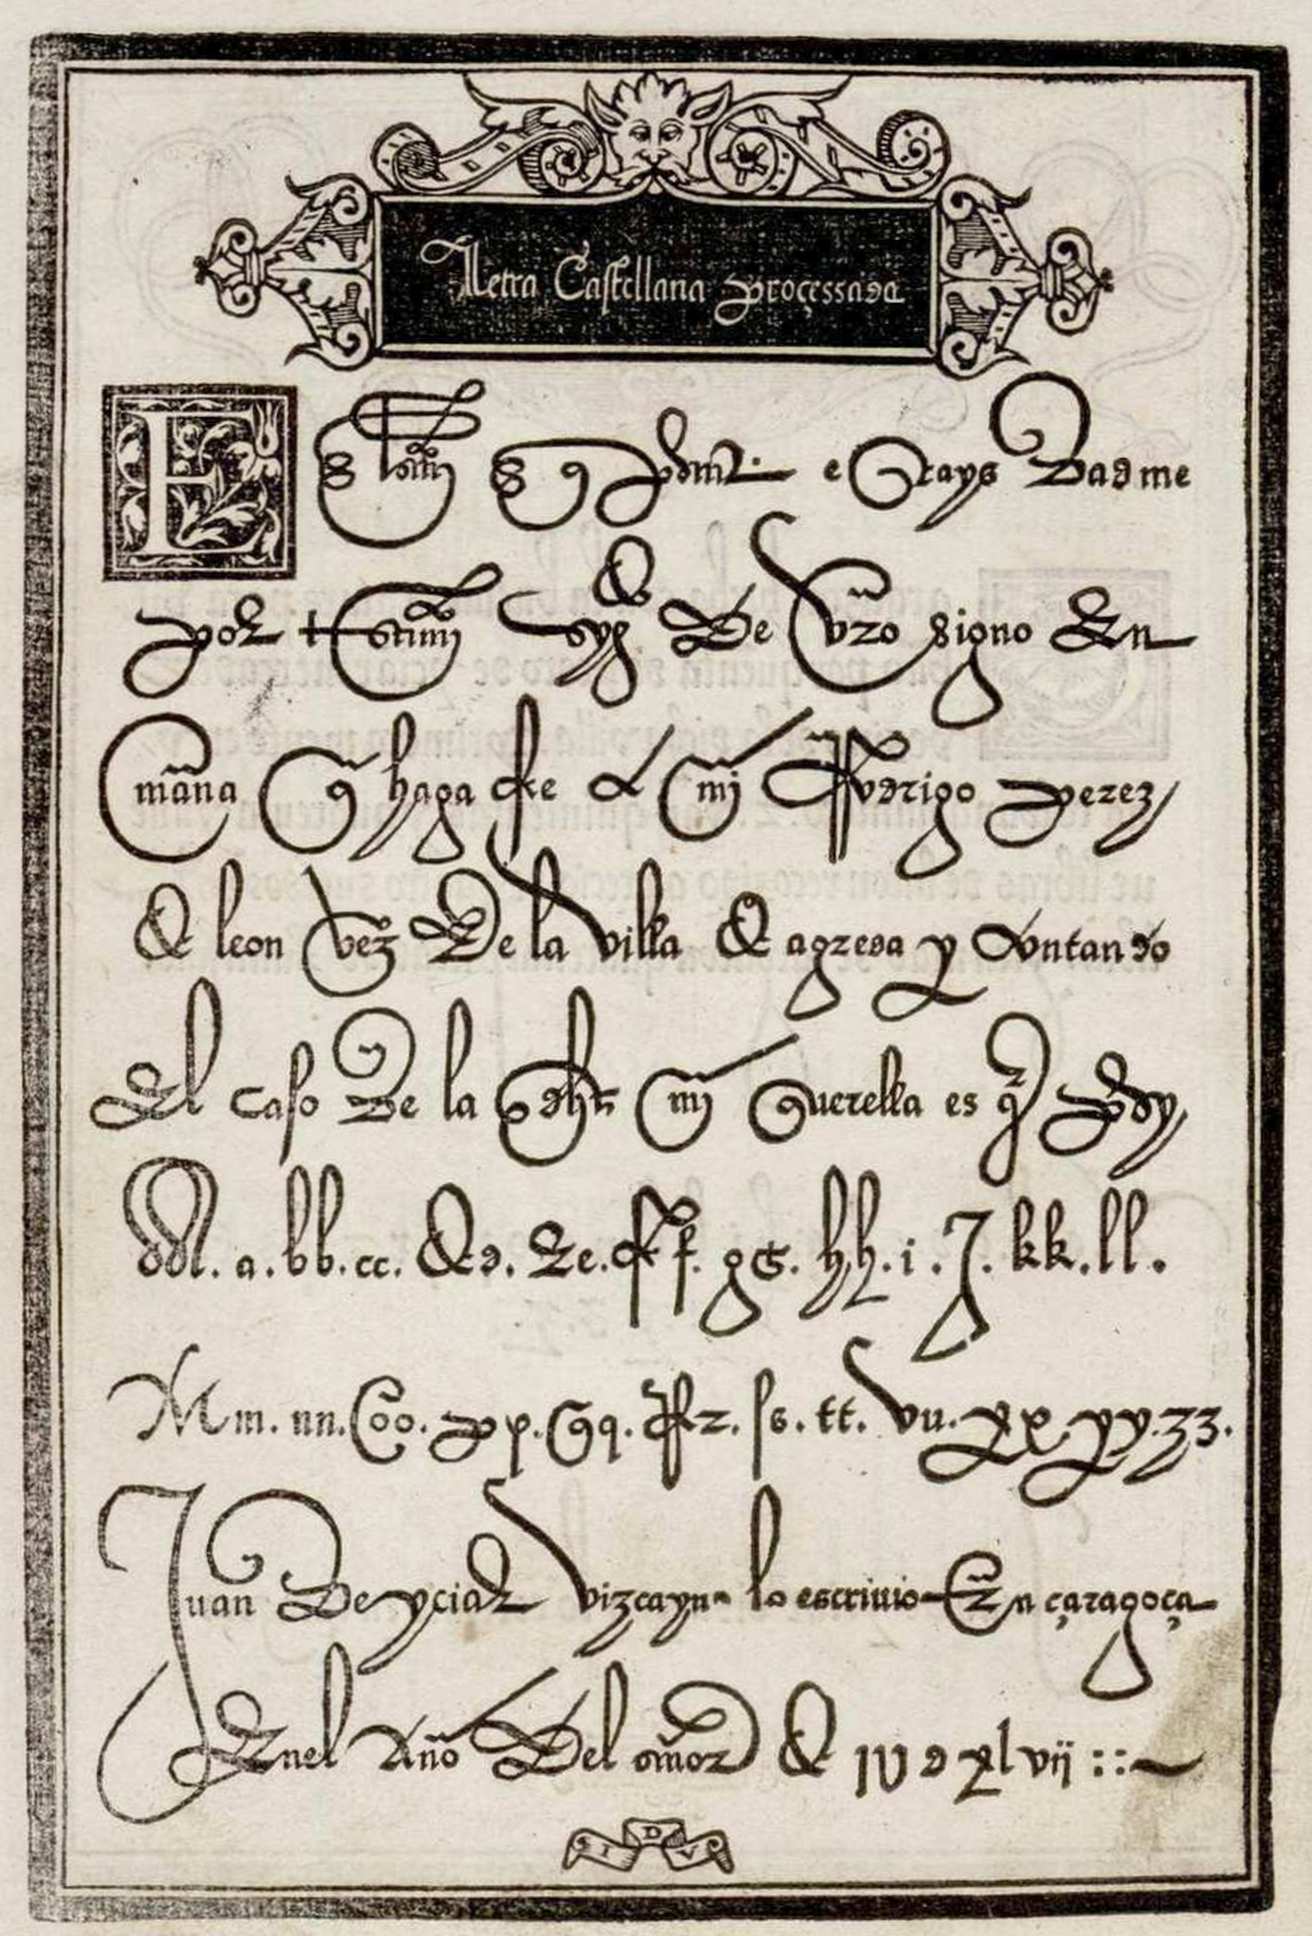 Letra Castellana processada
E
e Dadme
por De vr̃o signo En
mañana q̃ haga fee A mi Rodrigo perez
de leon vez̃ De la villa de agreda y Contando
El caso De la dh̃a mi querella es q̃
a. bb. cc. d d. E e. ff f. g G. h h. i. J. kk. ll.
M m. nn. O oo. p p. Q q. R r. ſ s. tt. v u. x x. y y. z z.
Juan De yciar vizcayno lo escriuio En çaragoça
Enel Año Del señor de M d xlvij
S I D V S